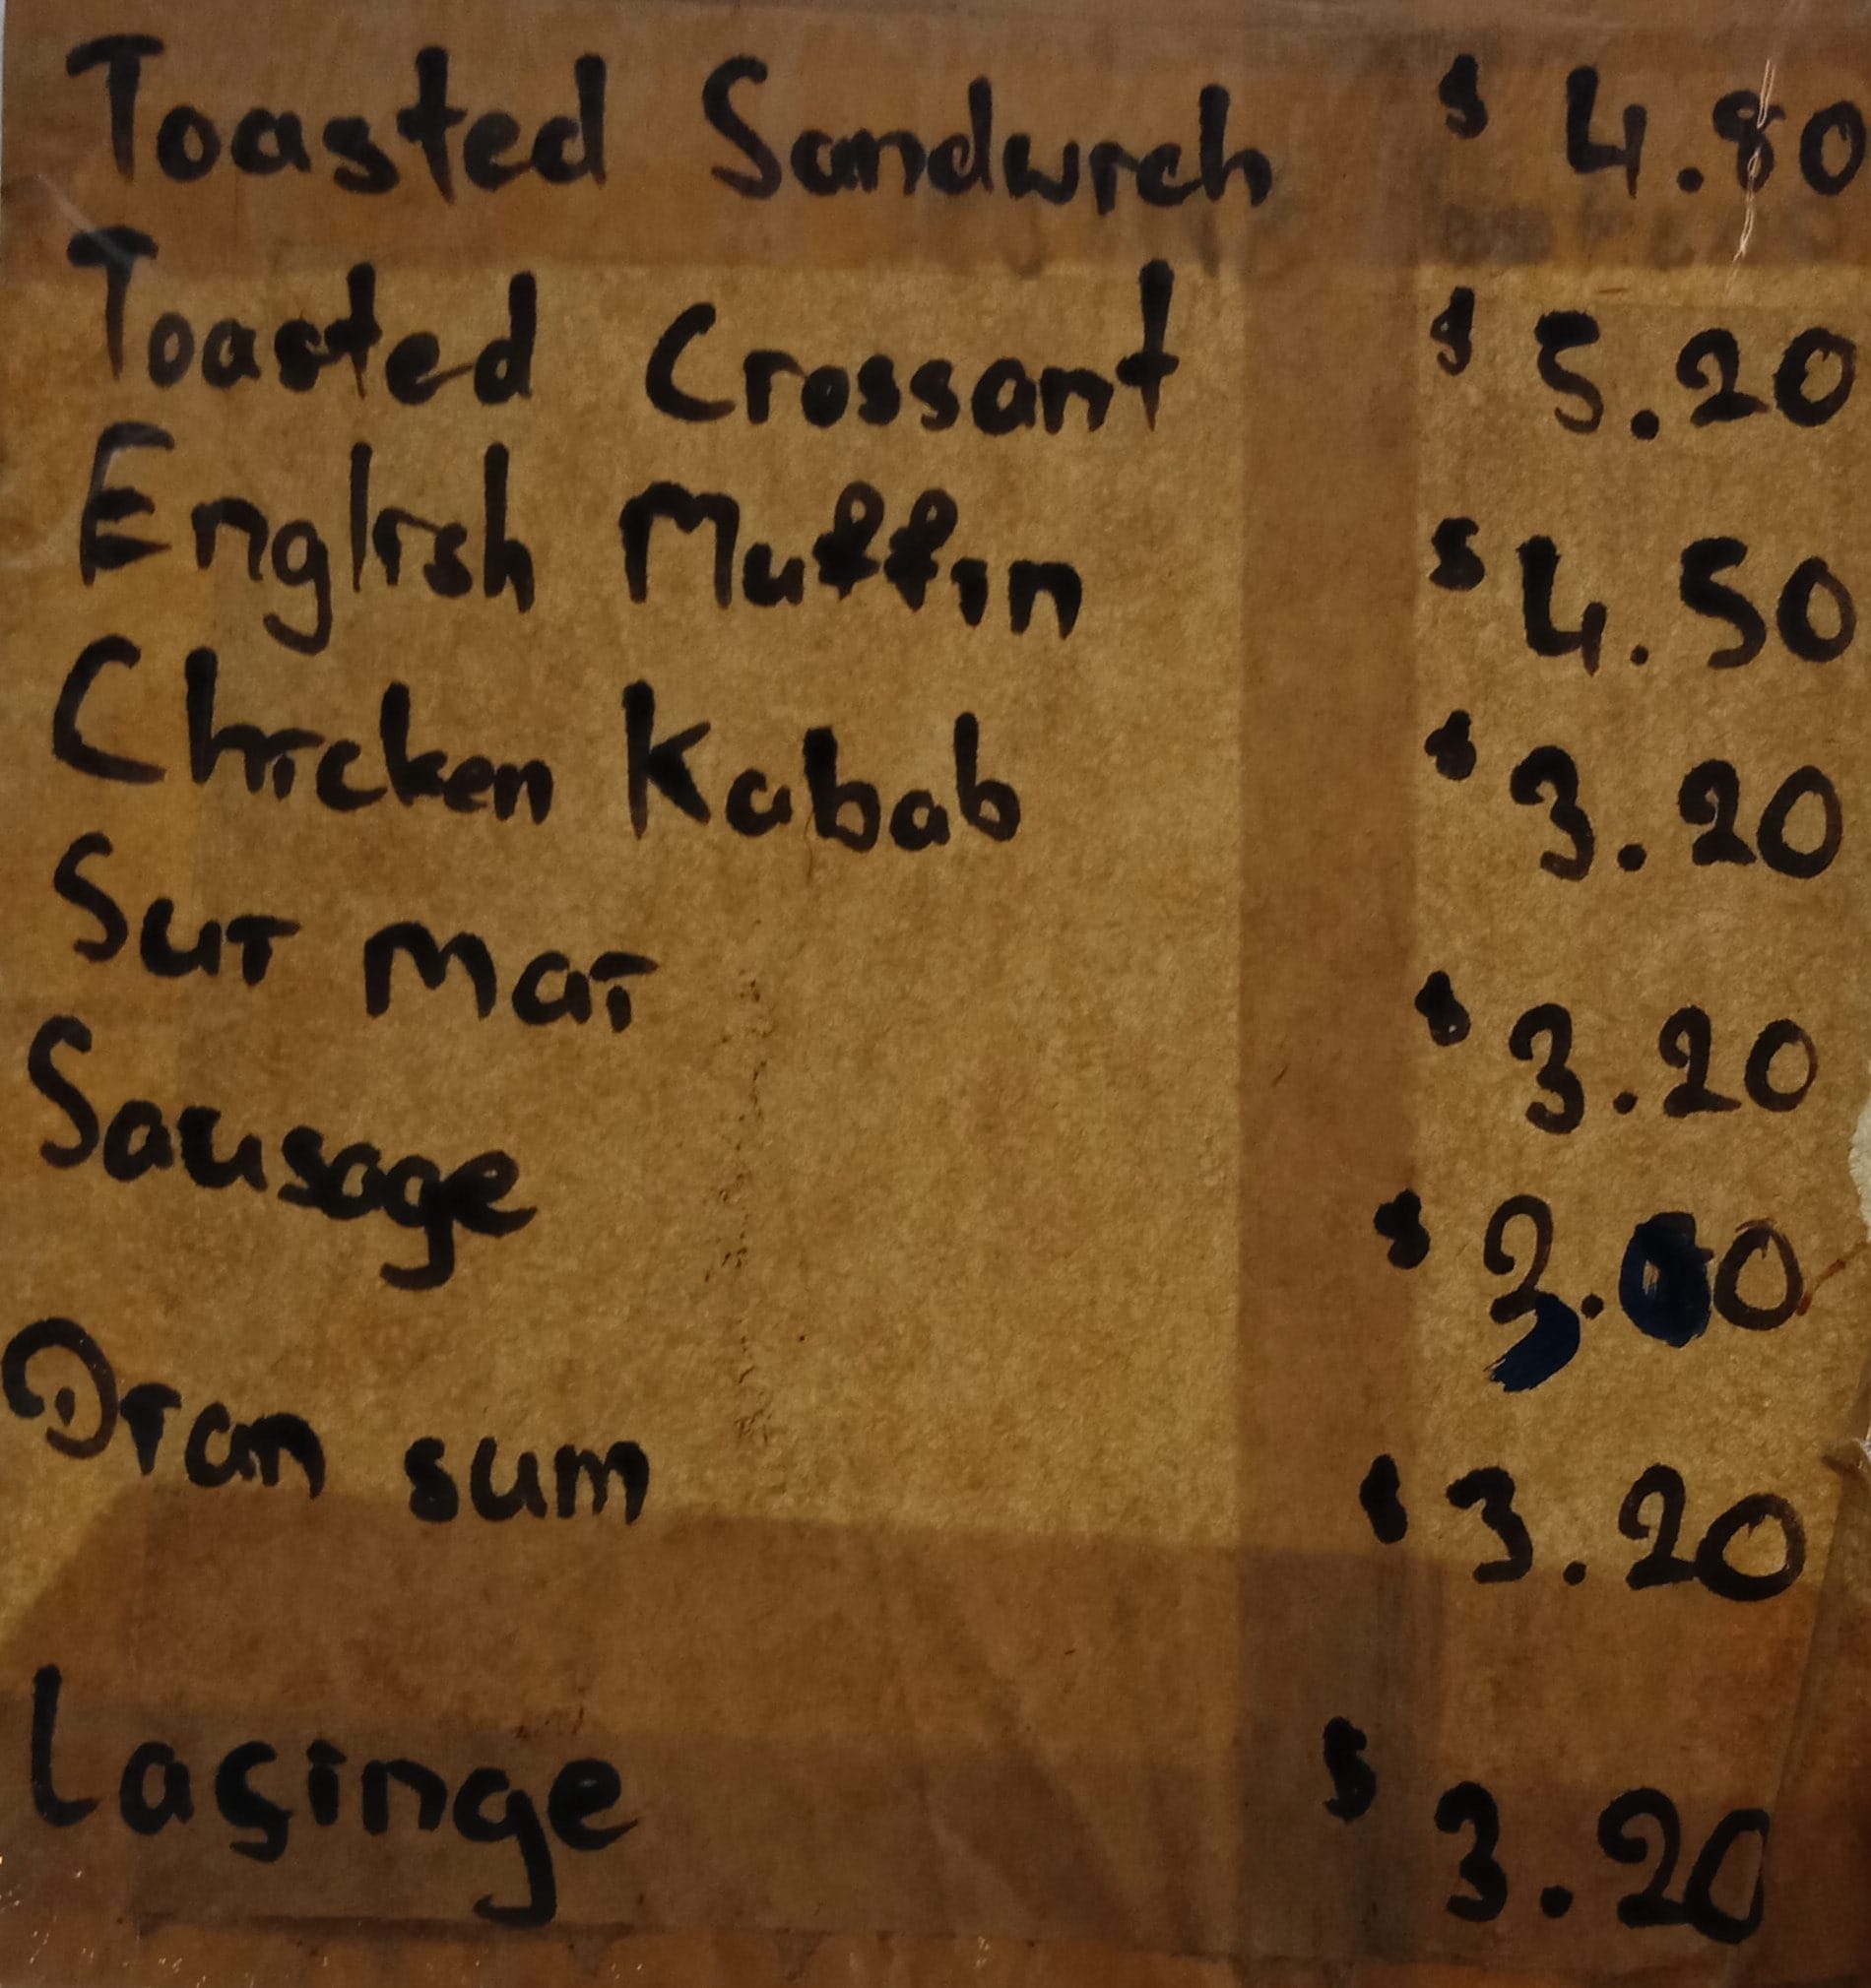 Toasted Sandwich $ 4.80
Toasted Crossant $ 5.20
English Muffin $ 4.50
Chicken Kabab $ 3.20
Sui Mai $ 3.20
Sausage $ 3.00
Dian sum $ 3.20
Lasinge $ 3.20